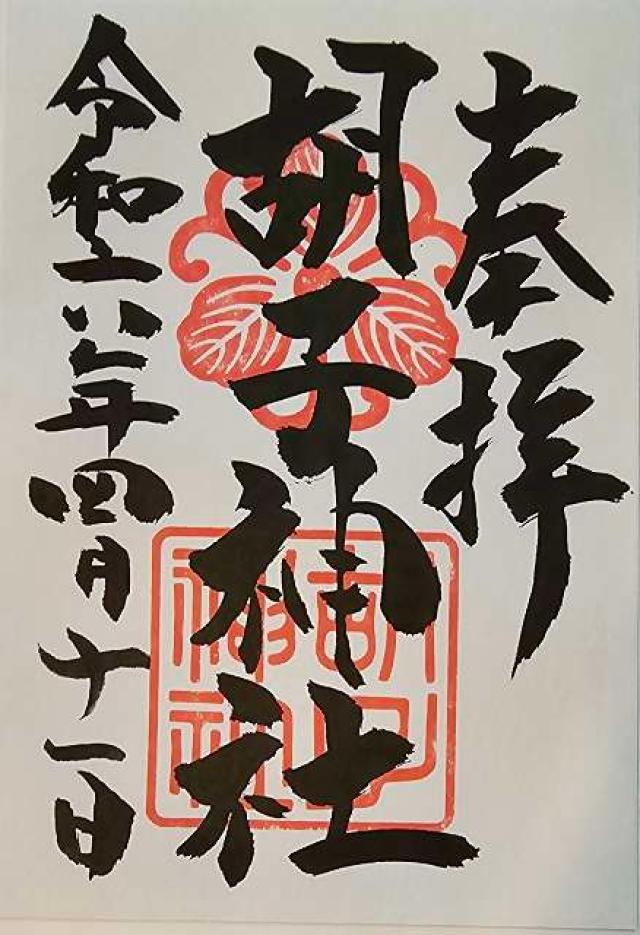 奉拝
胡子神社
令和六年四月十一日